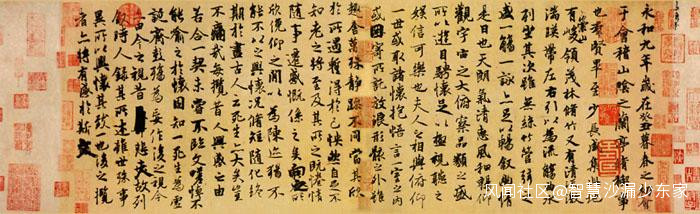 永和九年歲在癸丑暮春之初會
于會稽山陰之蘭亭脩稧事
也群賢畢至少長咸集此地
有崇山峻領茂林脩竹又有清流激
湍暎帶左右引以為流觴曲水
列坐其次雖無絲竹管弦之
盛一觴一詠亦足以暢敘幽情
是日也天朗氣清惠風和暢仰
觀宇宙之大俯察品類之盛
所以遊目騁懷足以極視聽之
娛信可樂也夫人之相與俯仰
一世或取諸懷抱悟言一室之內
或因寄所託放浪形骸之外雖
趣舍萬殊靜躁不同當其欣
於所遇蹔得於己怏然自足不
知老之將至及其所之既惓情
隨事遷感慨係之矣向之所
欣俛仰之閒以為陳迹猶不
能不以之興懷況脩短隨化終
期於盡古人云死生亦大矣豈
不痛哉每攬昔人興感之由
若合一契未嘗不臨文嗟悼不
能喻之於懷固知一死生為虛
誕齊彭殤為妄作後之視今
亦由今之視昔悲夫故列
敘時人錄其所述雖世殊事
異所以興懷其致一也後之攬
者亦將有感於斯文
风闻社区@智慧沙漏少东家